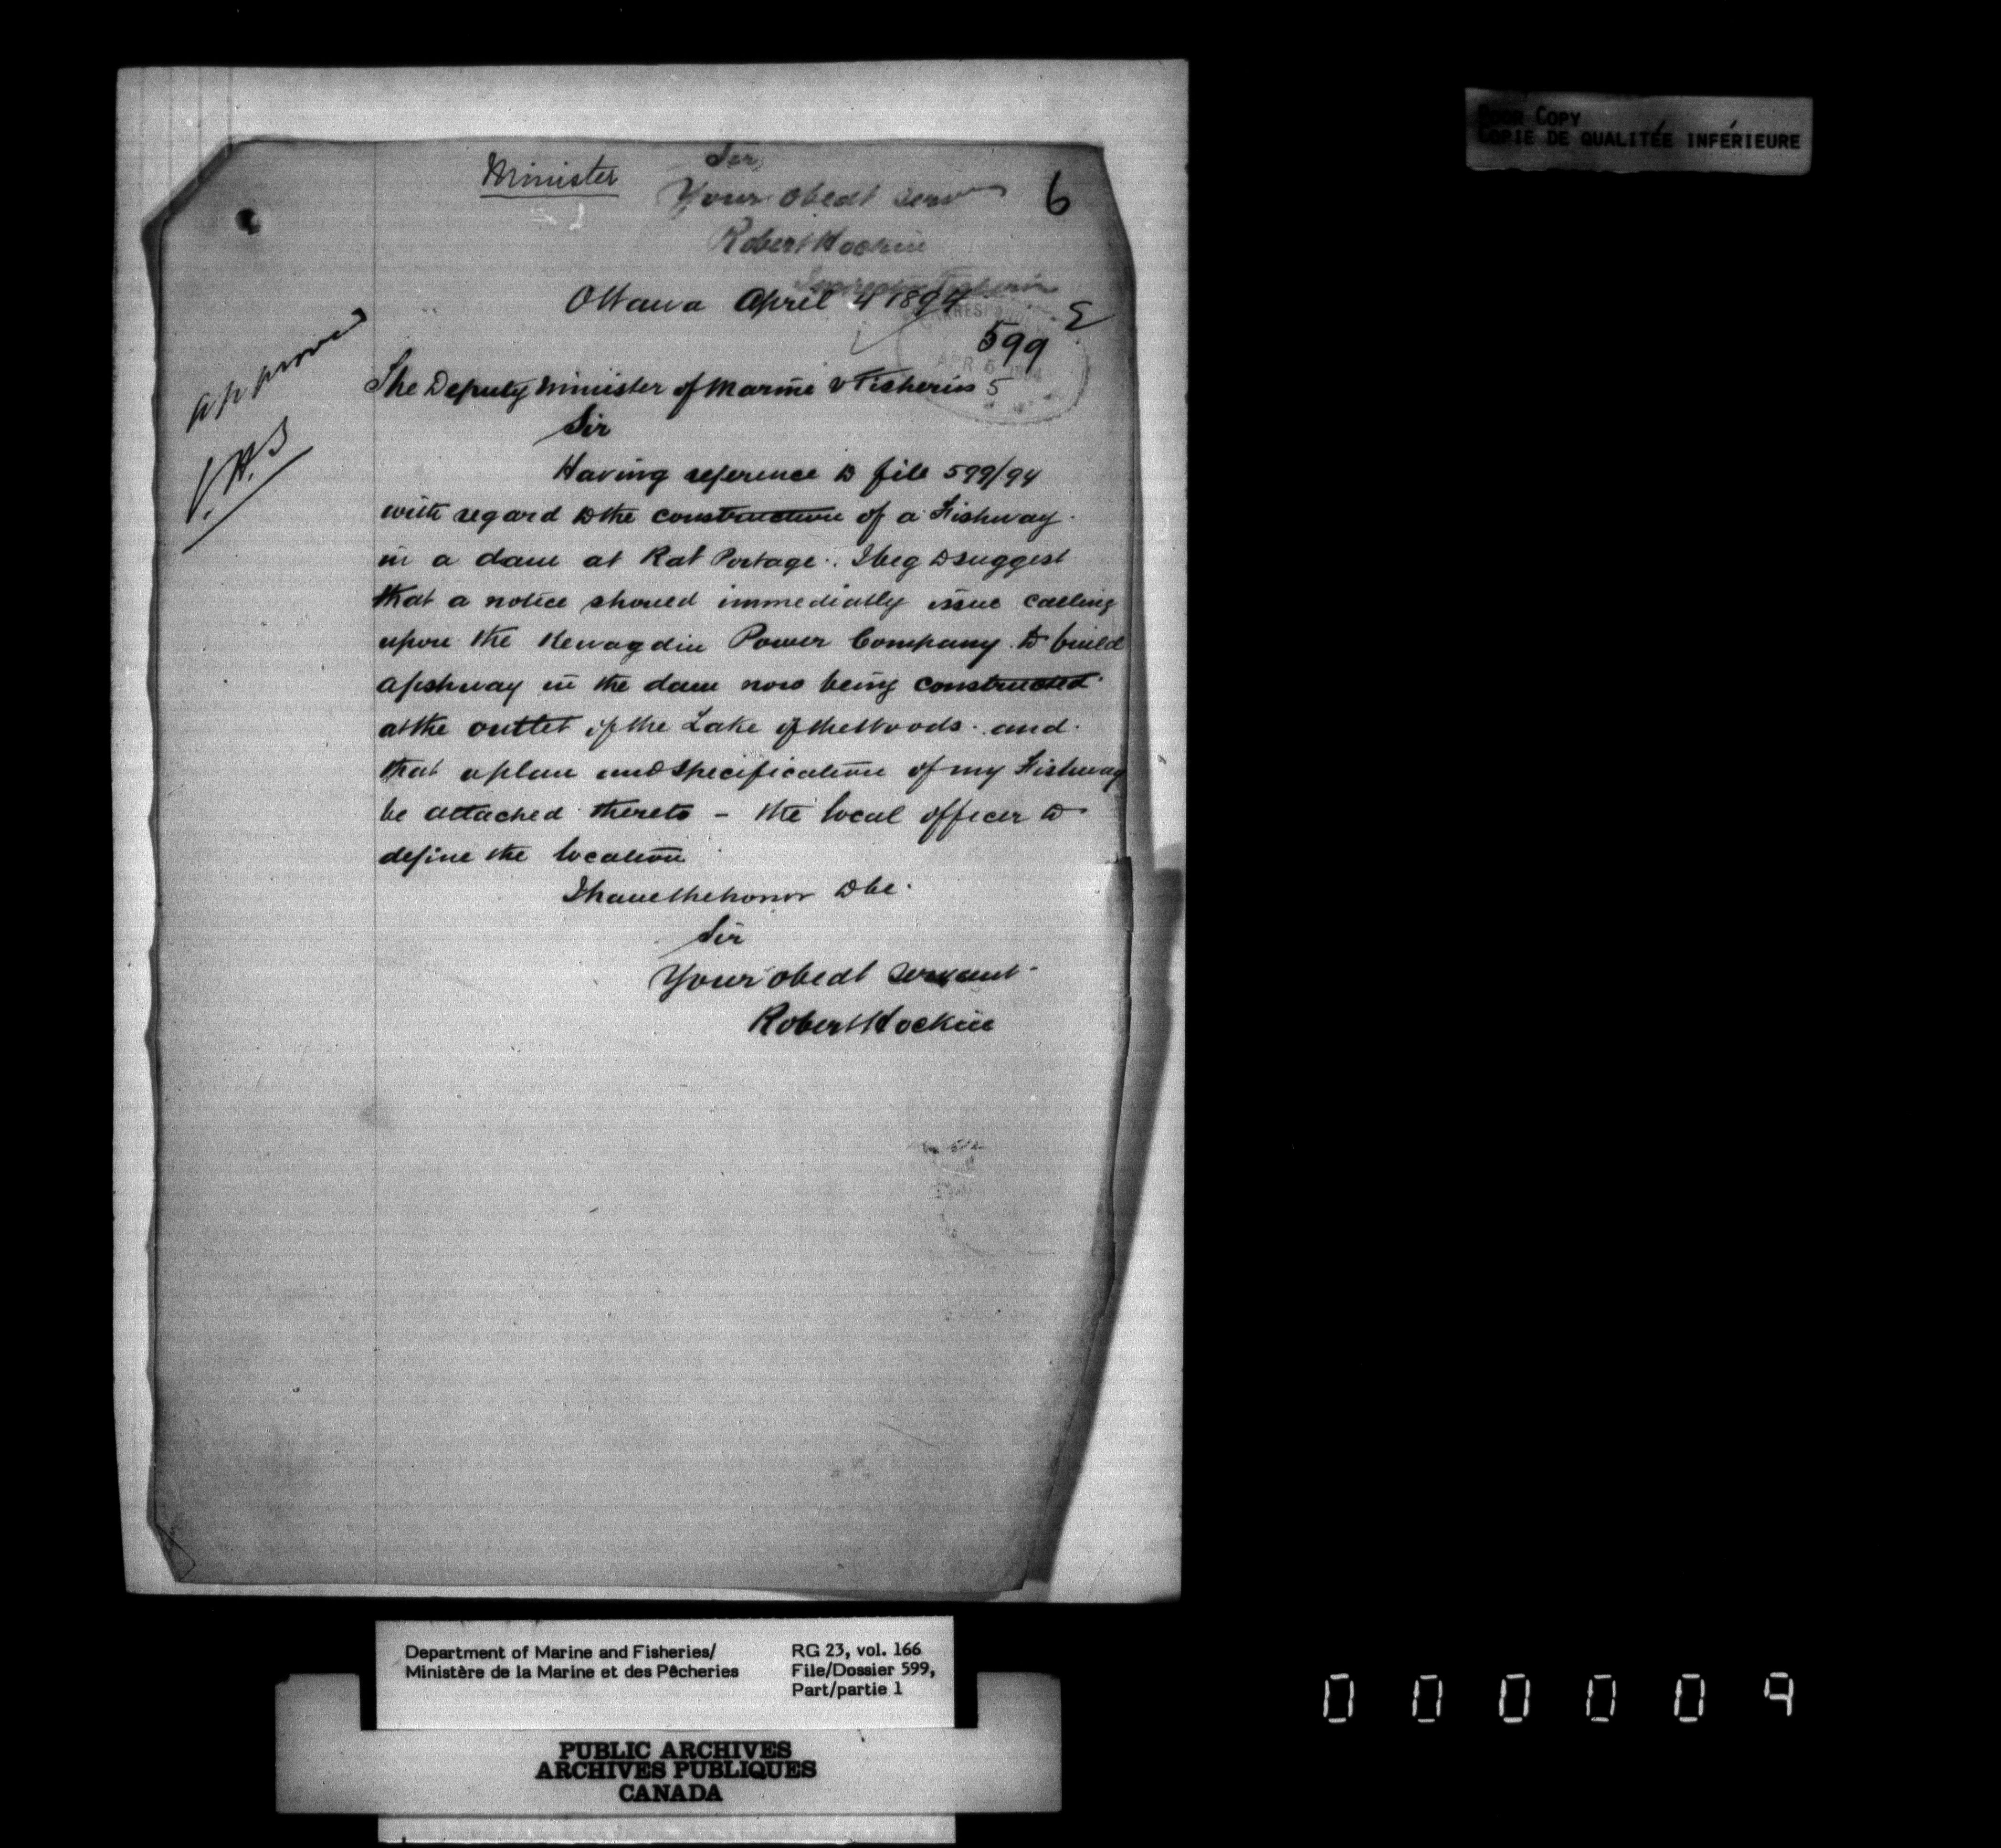 POOR COPY
COPIE DE QUALITÉE INFÉRIEURE
Minister
Sir
Your obedt serv
Robert Hockin
Inspector Fisheries
6
Ottawa April 4 1894
CORRESPOND
599
APR 5 1894
5
approved
The Deputy Minister of Marine & Fisheries
Sir
Having reference to file 599/94
with regard to the construction of a Fishway
in a dam at Rat Portage. I beg to suggest
that a notice should immediatly issue calling
upon the Kewagdin Power Company to build
a fishway in the dam now being constructed
at the outlet of the Lake of the Woods. and
that a plan and specification of my Fishway
be attached thereto - the local officer to
define the location
I have the honor to be.
Sir
Your obedt servant
Robert Hockin
Department of Marine and Fisheries/
Ministère de la Marine et des Pêcheries
RG 23, vol. 166
File/Dossier 599,
Part/partie 1
PUBLIC ARCHIVES
ARCHIVES PUBLIQUES
CANADA
000009